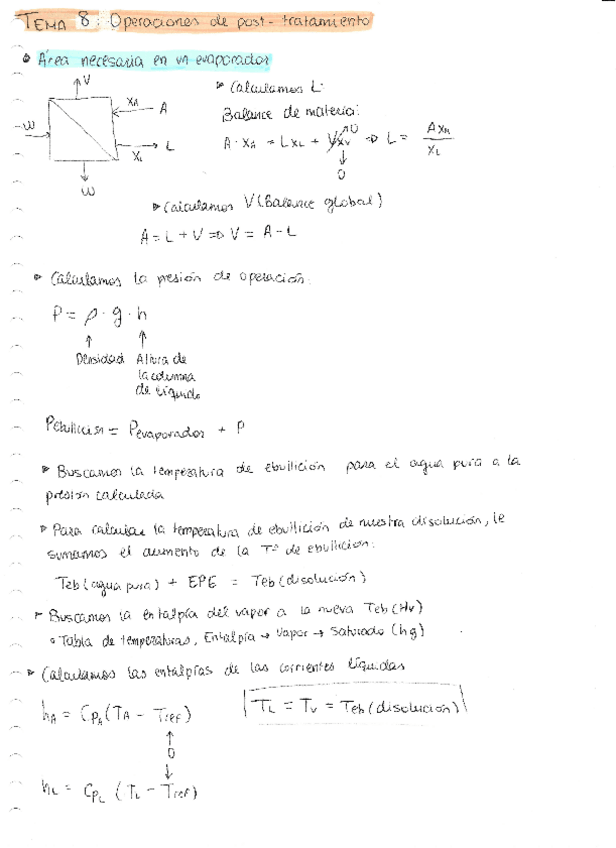 TEMA 8: Operaciones de post-tratamiento
• Área necesaria en un evaporador
V
XA
A
W
L
XL
W
▸ Calculamos L:
Balance de materia:
A · XA = LXL + VXV ⇒ L = AXA / XL
0
0
▸ Calculamos V (Balance global)
A = L + V ⇒ V = A - L
▸ Calculamos la presión de operación:
P = ρ · g · h
Densidad Altura de
la columna
de líquido
Pebullición = Pevaporador + P
▸ Buscamos la temperatura de ebullición para el agua pura a la
presión calculada
▸ Para calcular la temperatura de ebullición de nuestra disolución, le
sumamos el aumento de la Tª de ebullición:
Teb (agua pura) + EPE = Teb (disolución)
▸ Buscamos la entalpía del vapor a la nueva Teb (Hv)
• Tabla de temperaturas, Entalpía → Vapor → Saturado (hg)
▸ Calculamos las entalpías de las corrientes líquidas
hA = CpA (TA - Tref)
TL = TV = Teb (disolución)
0
hL = CpL (TL - Tref)